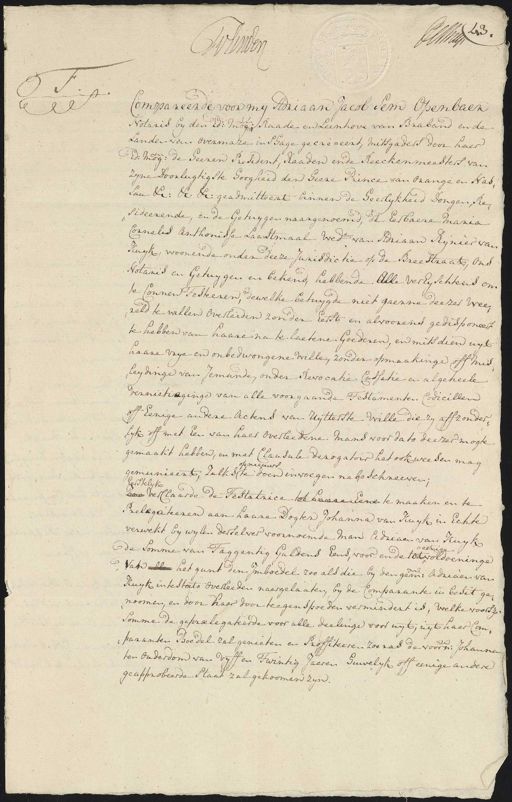 43.
F.
Compareerde voor my Adriaan Jacob Sem Openbaer
Notaris by den Ed: Raade en Leenhove van Braband en de
Landen van Overmaze in S'Hage gecreëert, mitsgaders door haer
Ed: de Heeren President, Raaden ende Reeckenmeesters van
zyne Doorlugtigste Hoogheid den Heere Prince van Orange en Nas,
sau &c: &c: &c: geadmitteert binnen de Heerlykheid Dongen, Re,
sideerende, en de Getuygen naargenoemd, de Eerbaere Maria
Cornelis Anthonisse Laadtmaal Wed.e van Adriaan Reynier van
Kuyk, woonende onder deeze Jurisdictie op de Breestraate, Ons
Notaris en Getuygen en bekend, hebbende Alle verlyschtens om
te Connen Testeeren, dewelke betuygde niet gaerne deeze Wee,
reld te willen Overleiden zonder Eerst en alvoorens gedisponeert
te hebben van haare na te laetene Goederen, en mits dien uyt
haare vrye en onbedwongene wille, zonder opmaakinge off mis,
leydinge van Jemande, onder Revocatie Cassatie en algeheele
vernietinge van alle voorgaande Testamenten Codicillen
off Eenige andere Actens van Uytterste Wille die zy aff zonder,
lyk off met Een van haer Overleedene Mans voor dato deezer mogte
gemaakt hebben, en met Clausule derogatoir het ook weesen mag
gemunieert, zulks te doen invoegen na beschreeven;
verClaarde De Testatrice te maaken en te
Prelegateeren aan haare Dogter Johanna van Kuyk in Echte
verwekt by wylen derselver voornoemde Man Adriaan van Kuyk
de Somme van Taggentig Guldens Eens, voor ende voldoeninge
Van het gunt den Jnboedel zoo als die by den gem: Adriaen van
Kuyk intestato Overleeden naergelaaten, by de Comparante in besit ge,
noomen, en door haer door teegenspoeden vermindert is, welke voorsz:
Somme de geprelegateerde voor alle deelinge vooruyt, uyt haer Com,
parantens Boedel zal genieten en Proffiteeren zoo ras de voorn: Johanna
ten Ouderdom van Vyff en Twintig Jaeren Huwelyk off eenige andere
geapprobeerde Staat zal gekoomen zyn.